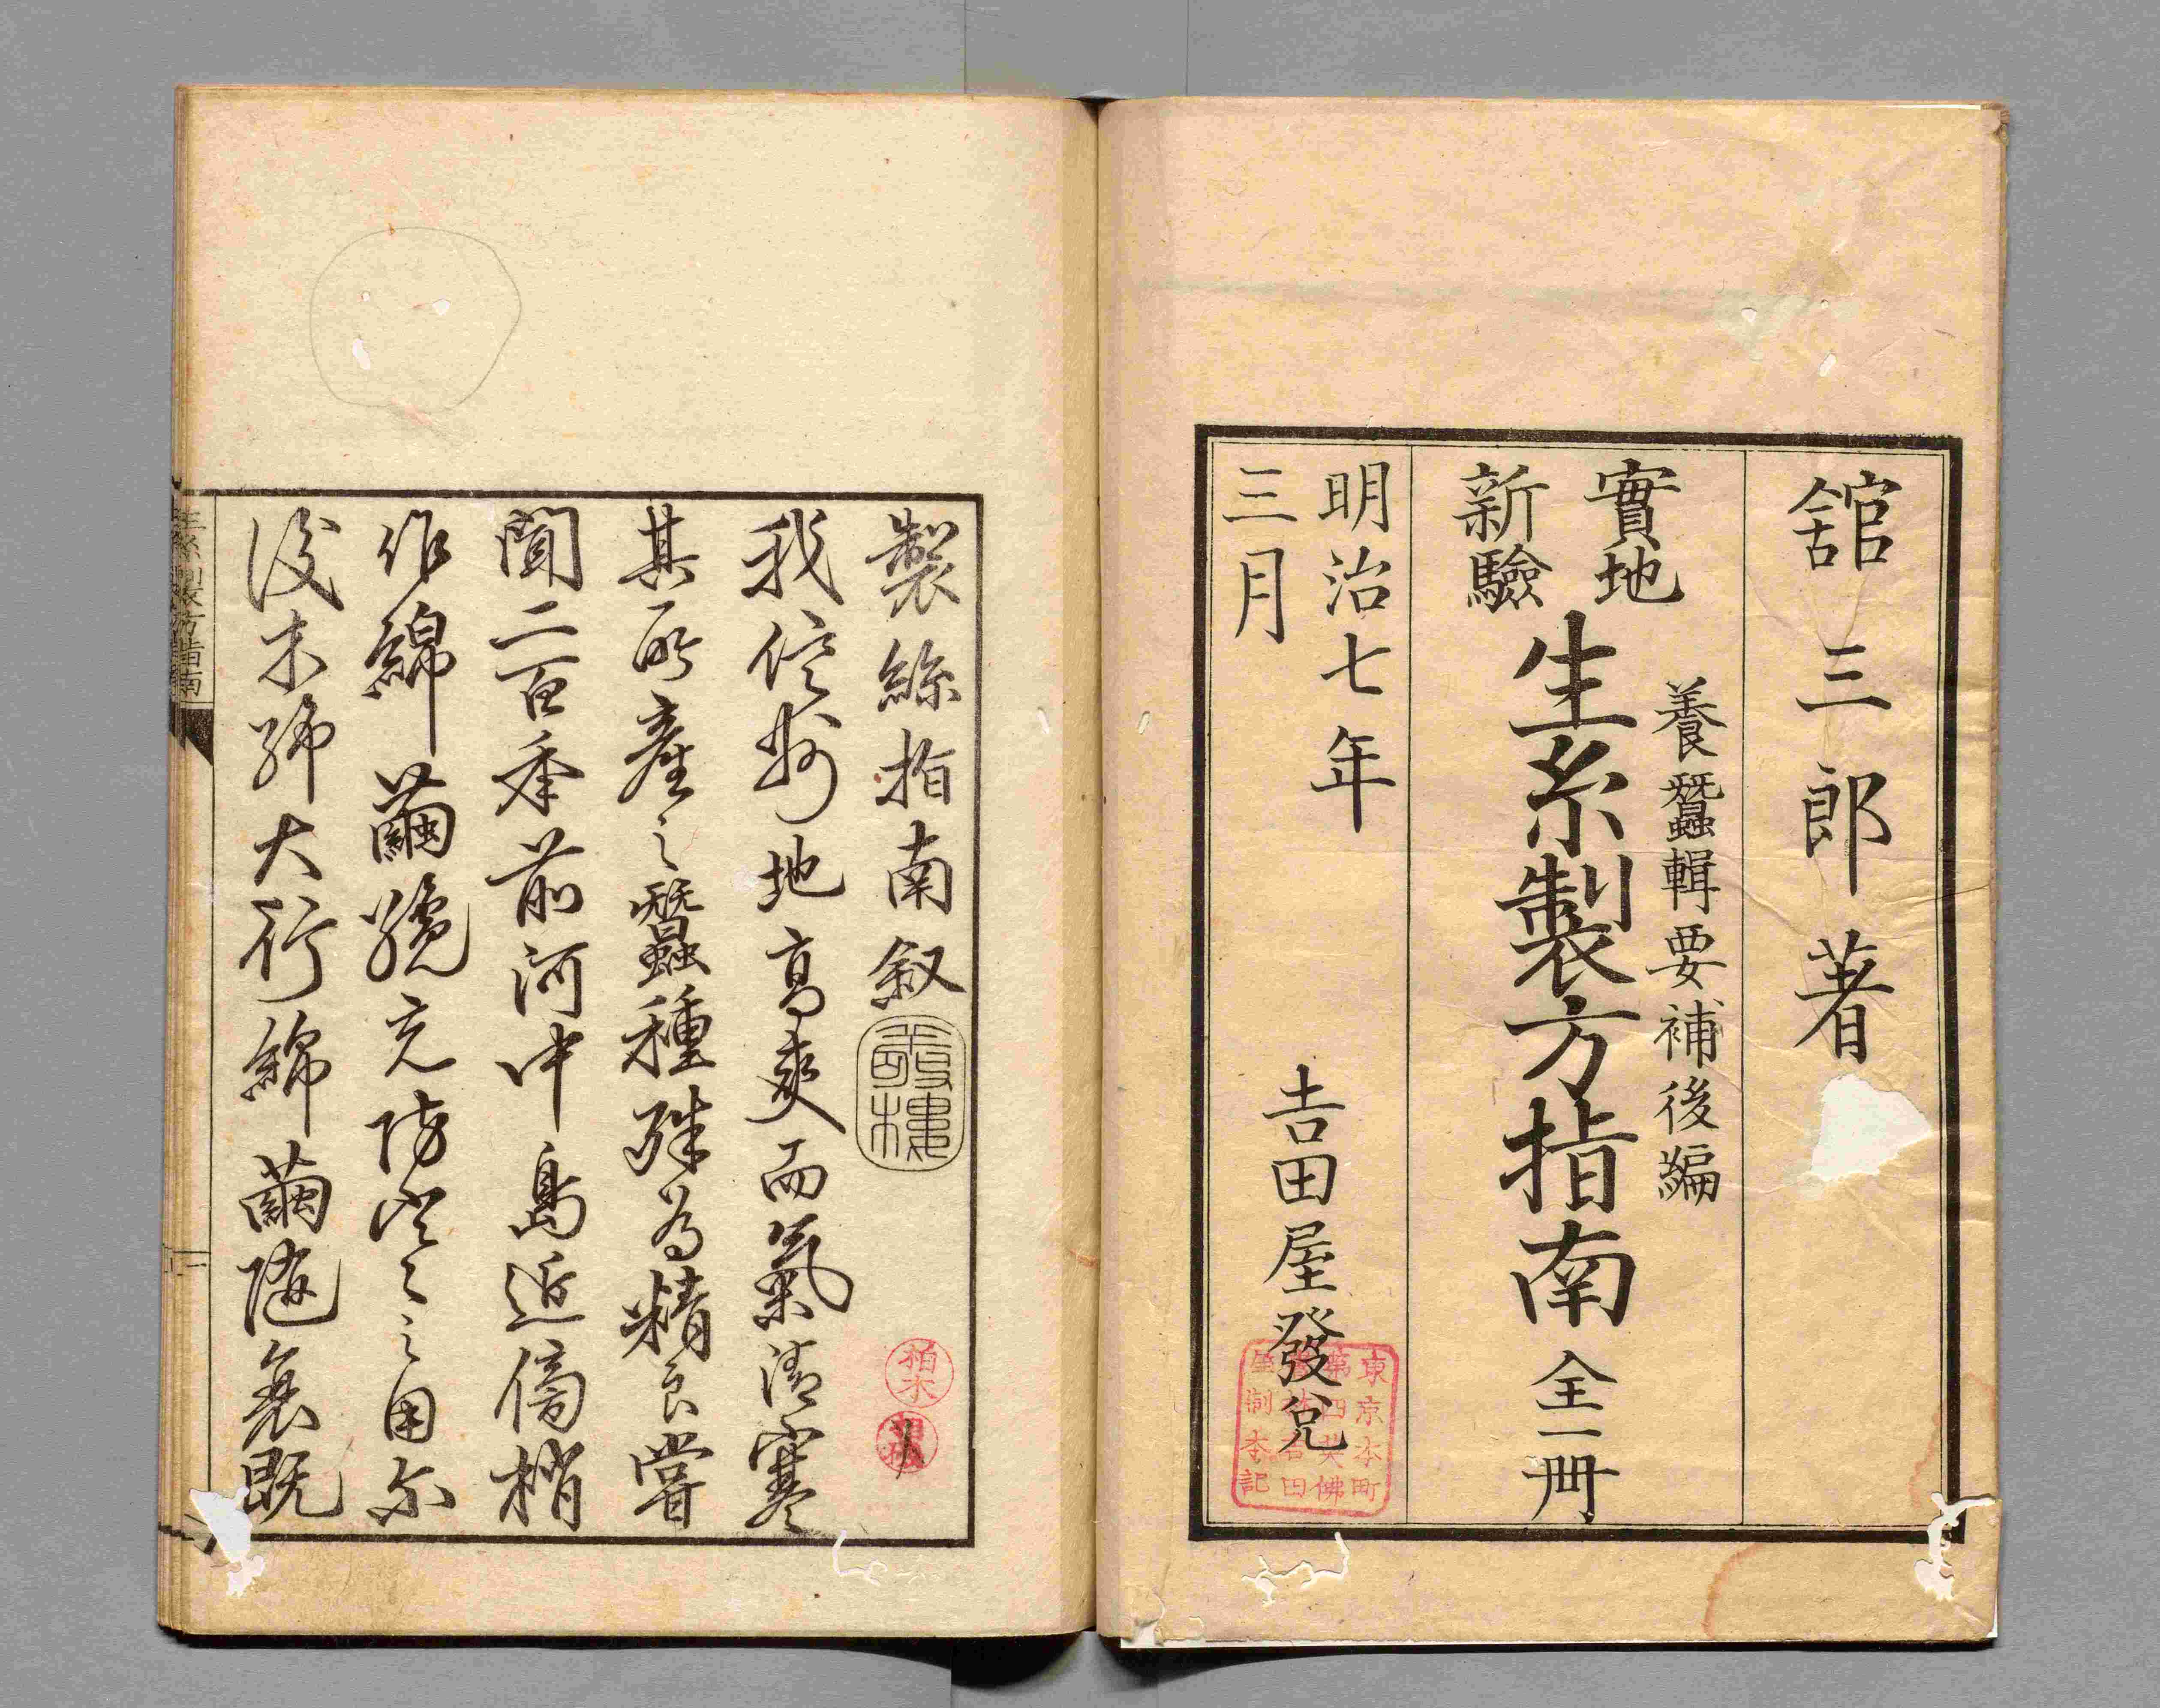 舘三郎著
實地
新驗
生糸製方指南 全一冊
養蠶輯要補後編
明治七年
三月
吉田屋發兌
東京本町
製絲指南叙
柏木
我信州地高爽而氣清寒
其所產之蠶種殊為精良嘗
聞二百年前河中島近傍稍
作綿繭纔充防寒之用尓
後未師大行綿繭随衰既
生絲製方指南